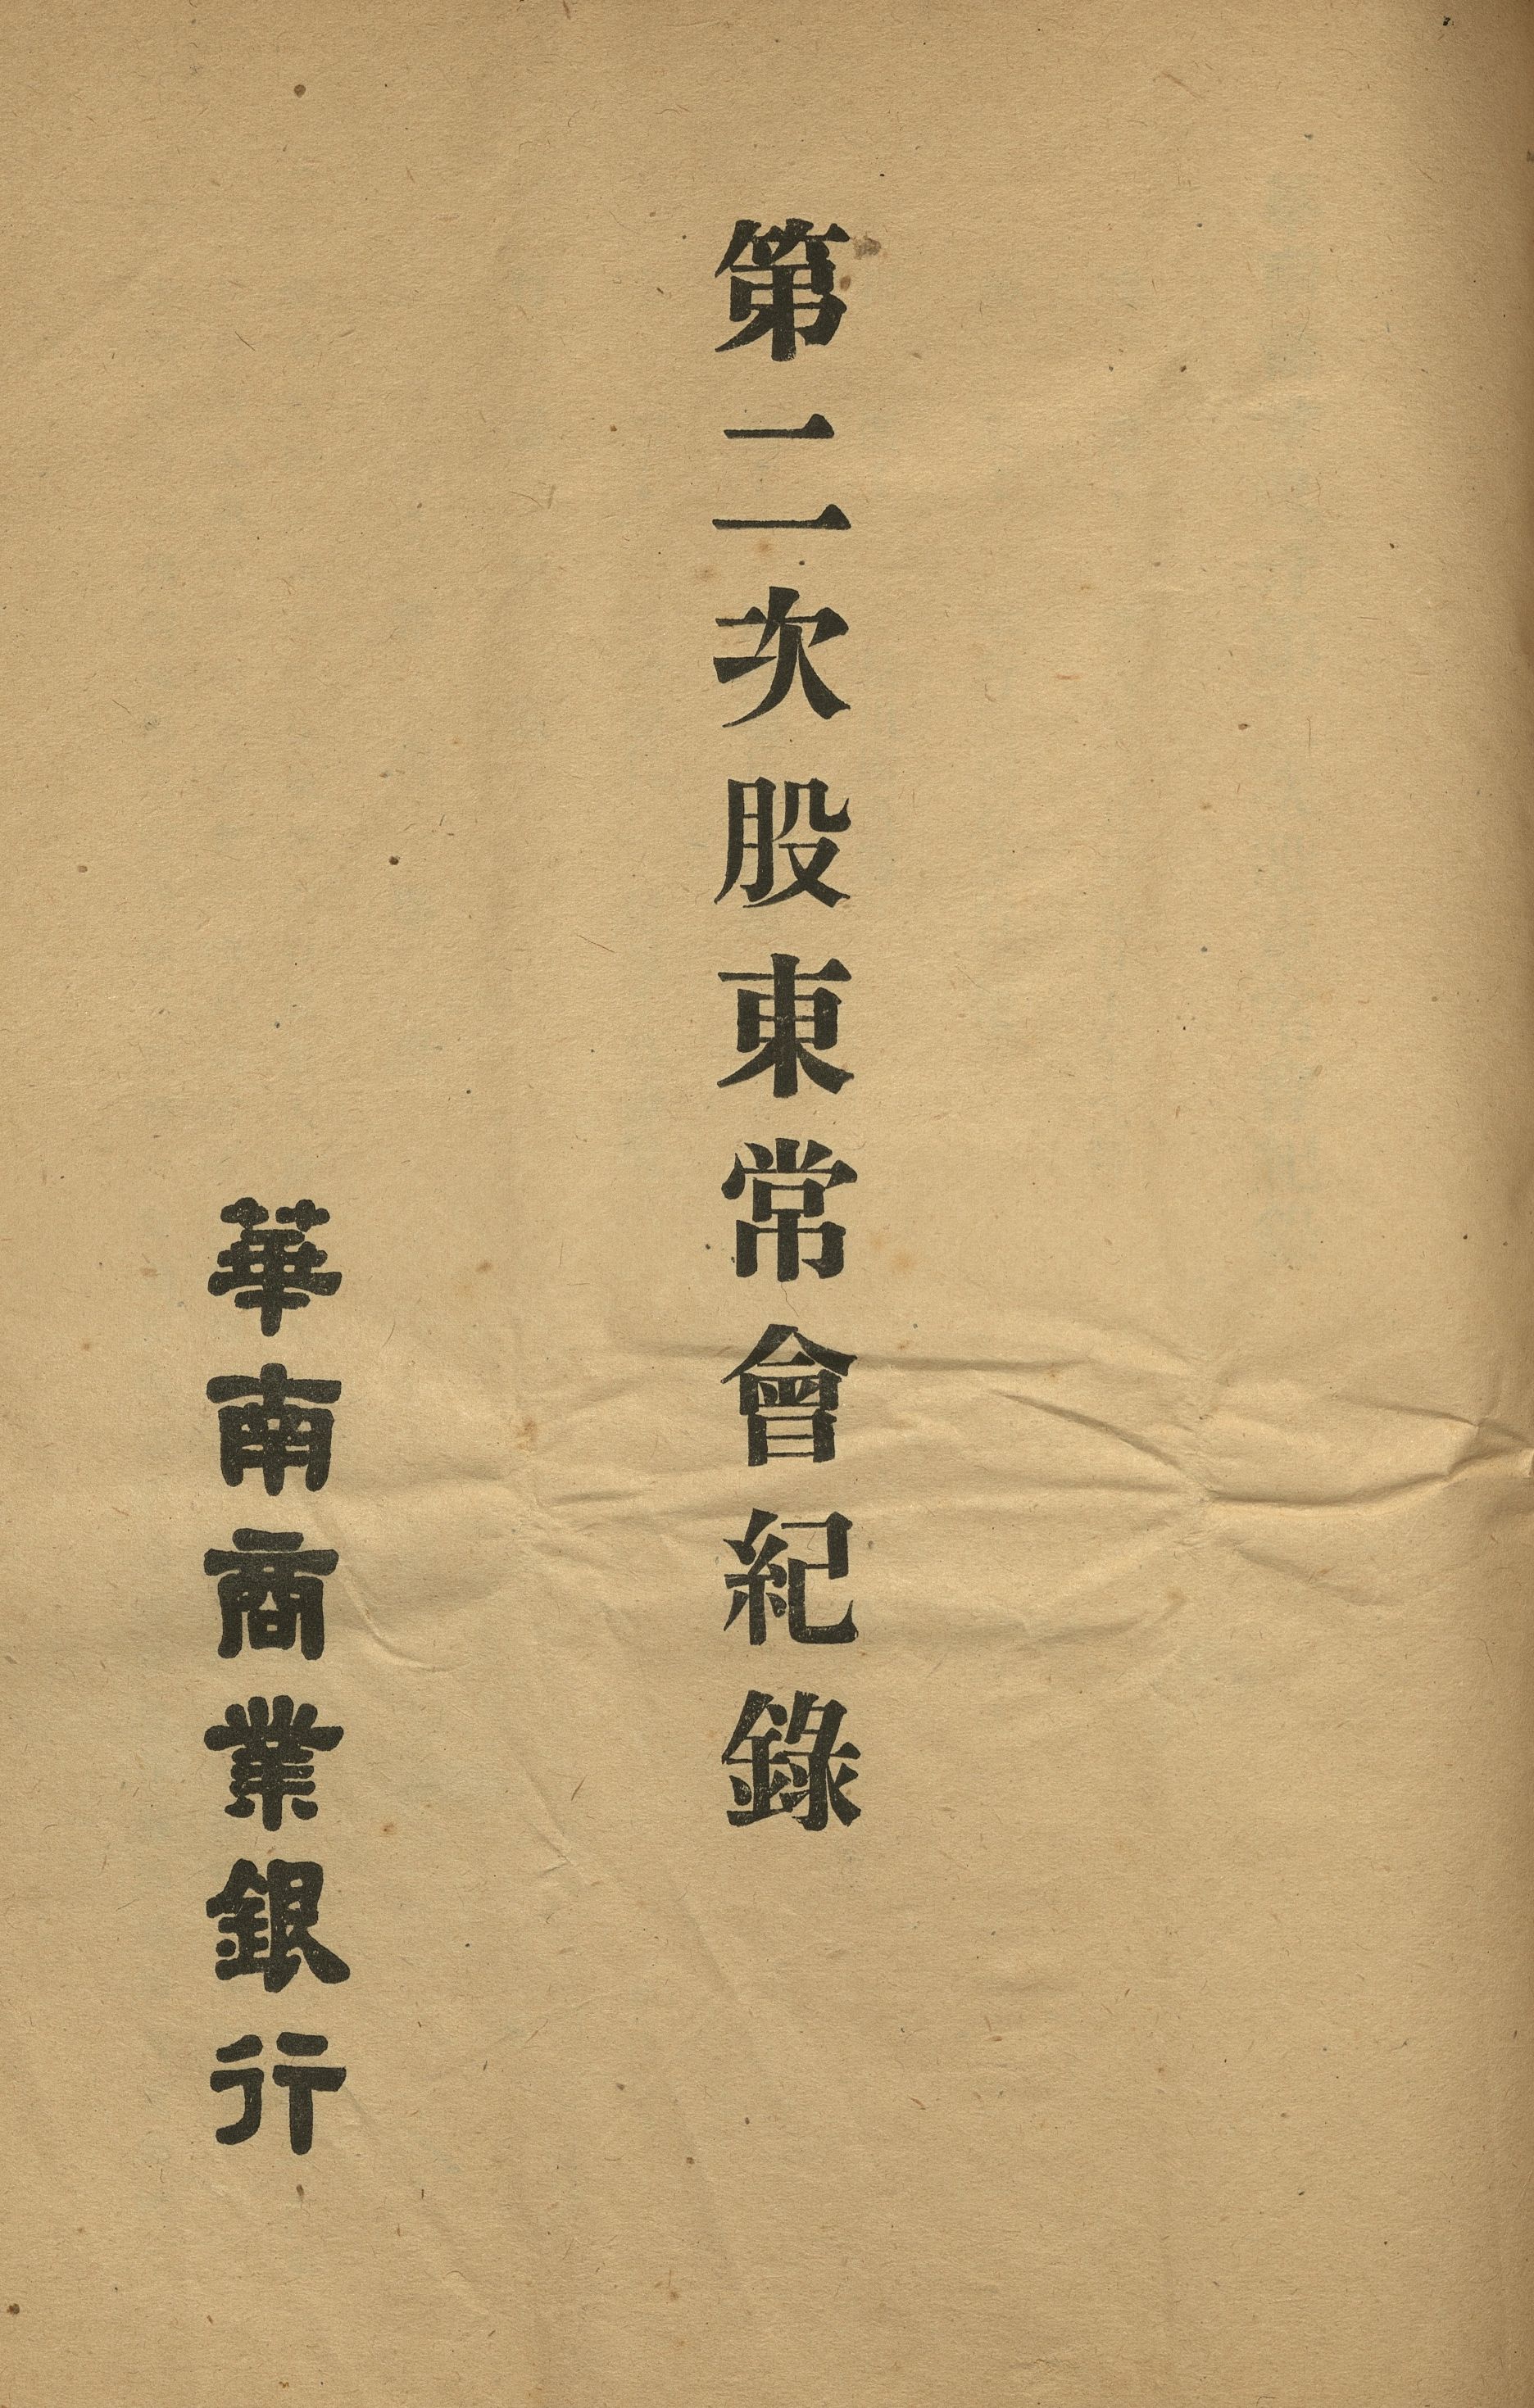 第二次股東常會紀錄
華南商業銀行